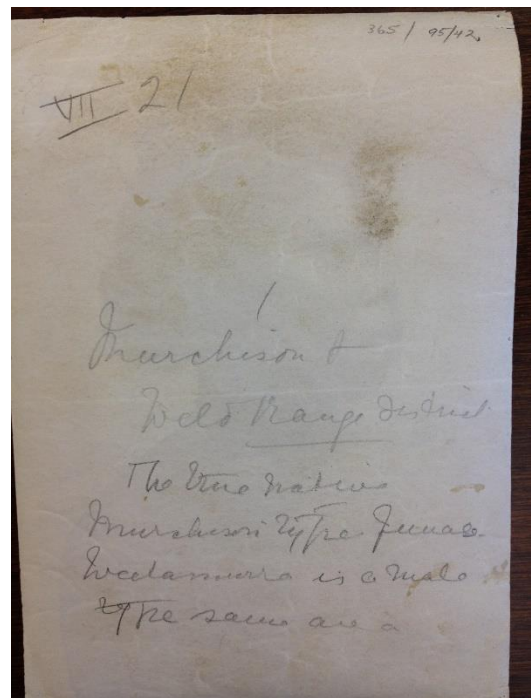 365 / 95/42
VII 21
1
Murchison &
Weld Range District
The true native
Murchison Type Female.
is a male
Type same area